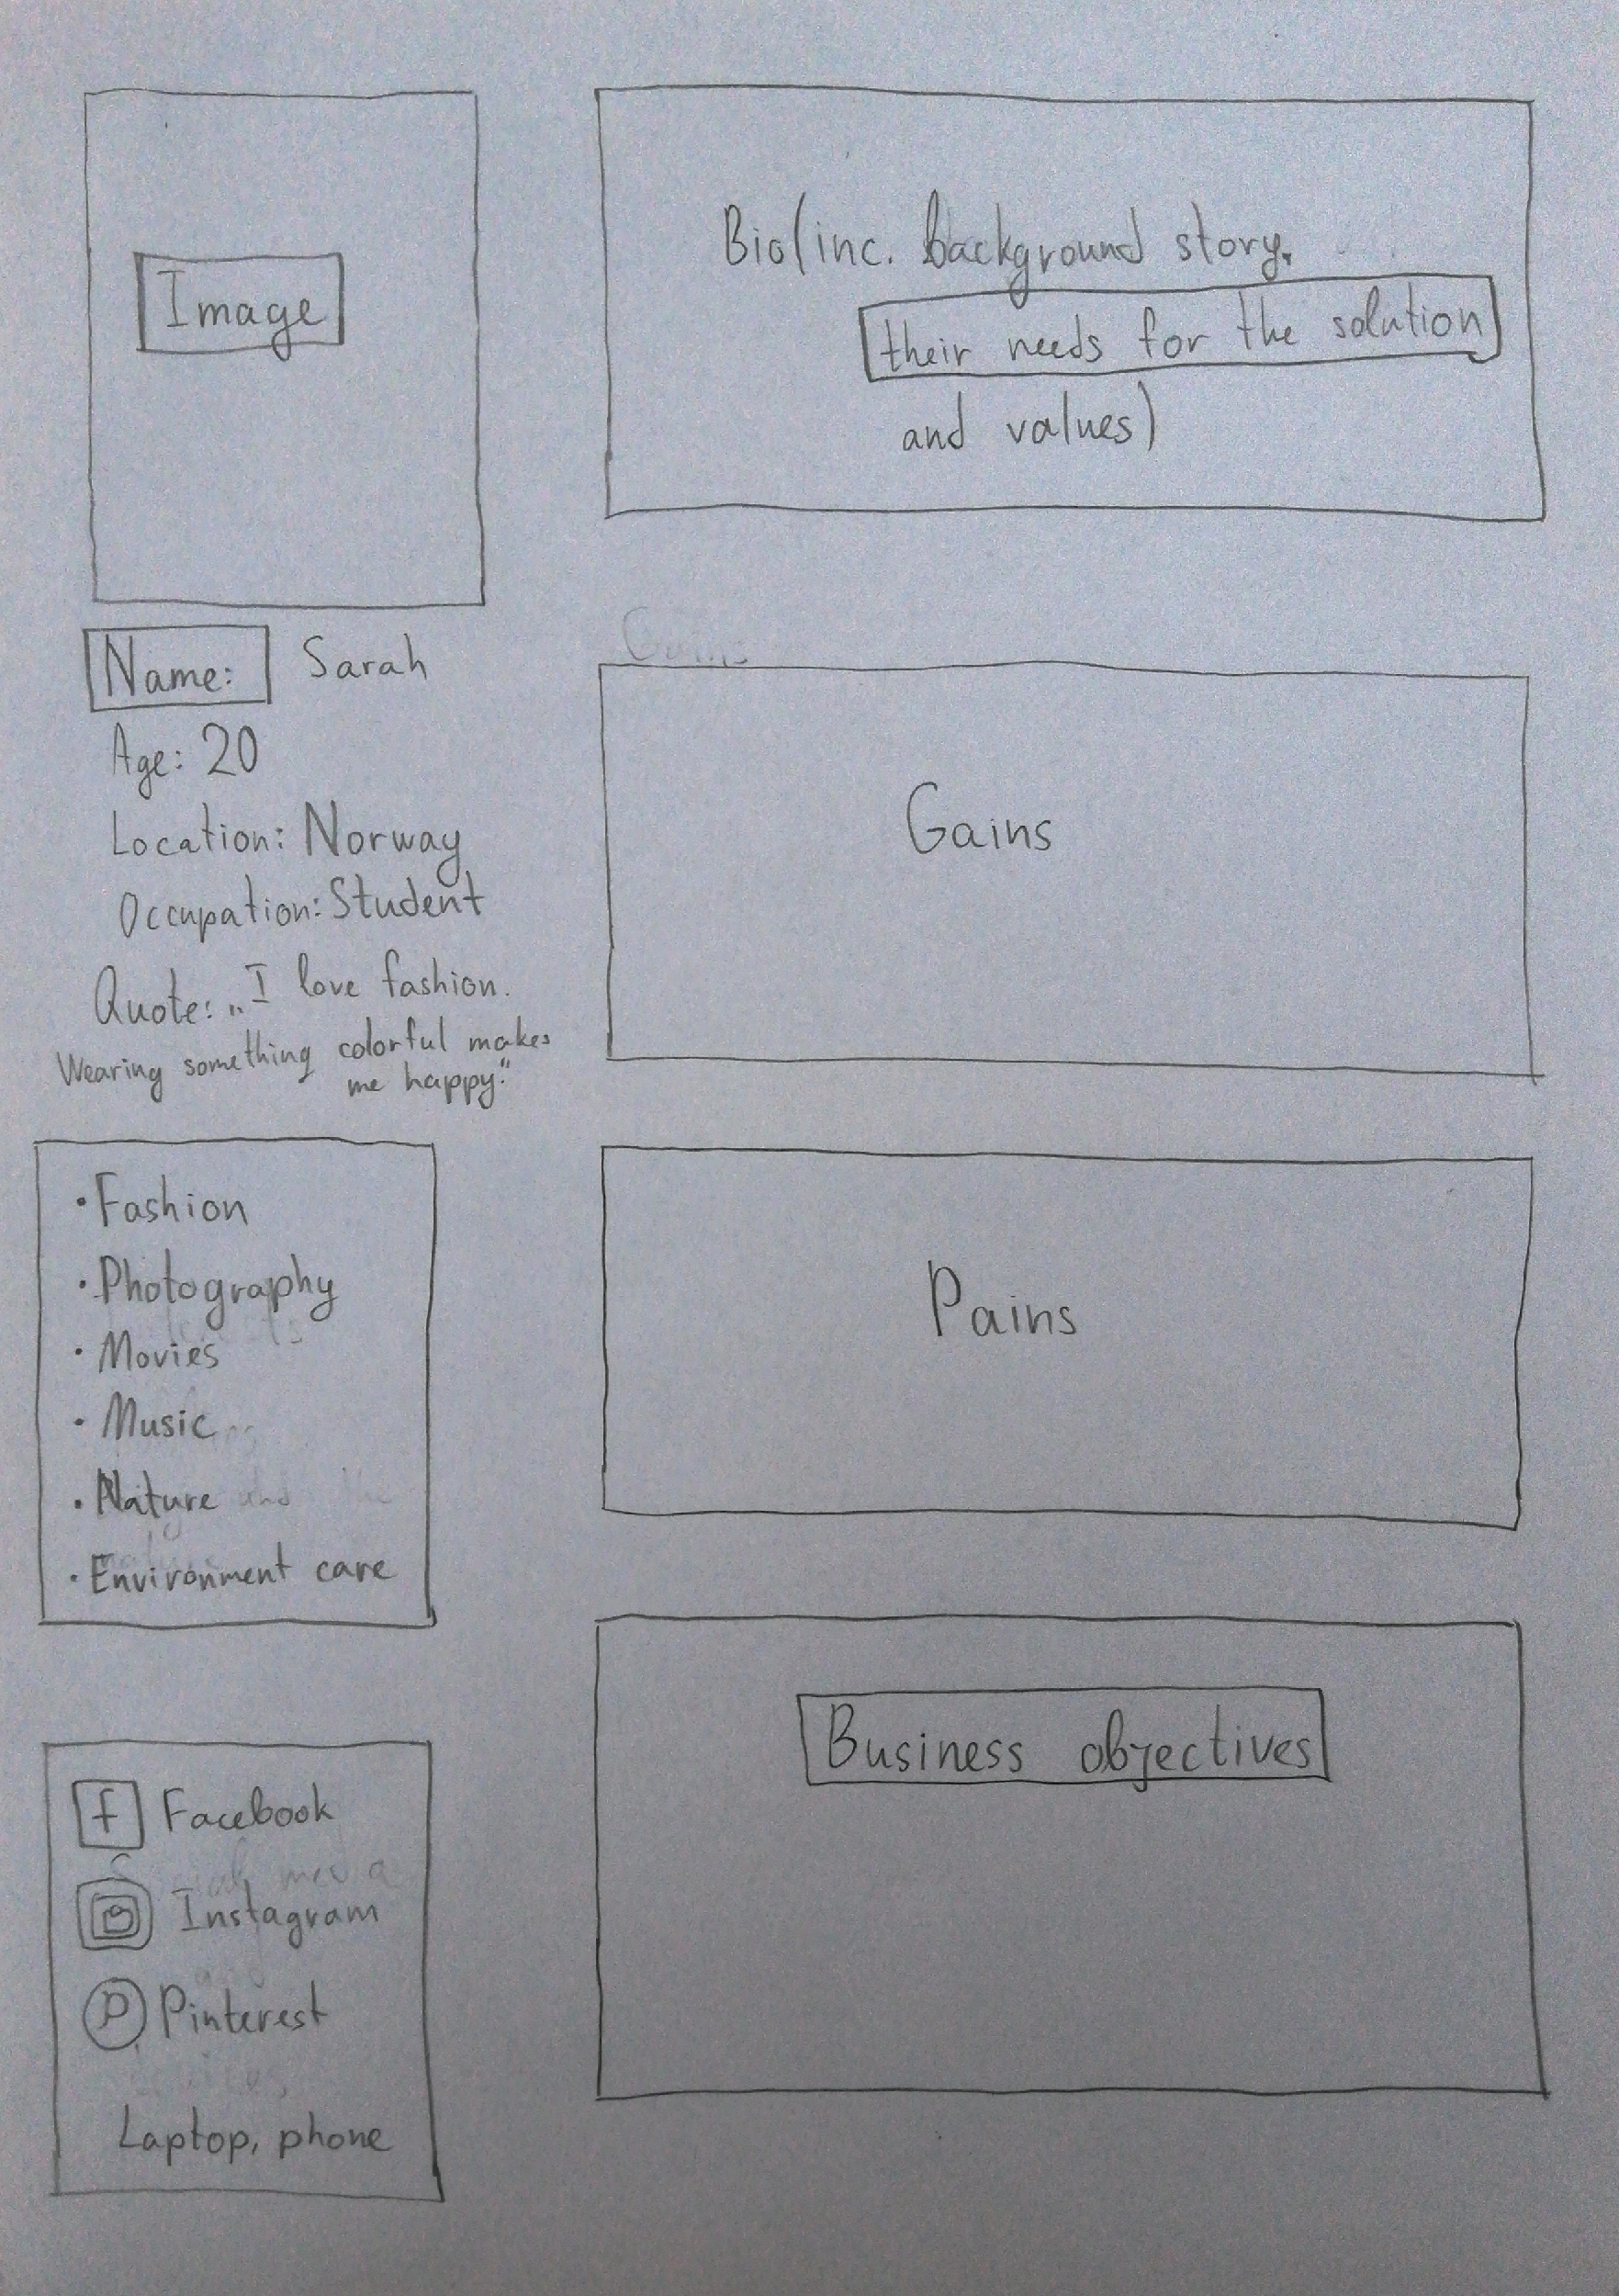 Image
Name: Sarah
Age: 20
Location: Norway
Occupation: Student
Quote: „I love fashion.
Wearing something colorful makes
me happy."
• Fashion
• Photography
• Movies
• Music
• Nature
• Environment care
f Facebook
Instagram
P Pinterest
Laptop, phone
Bio (inc. background story,
their needs for the solution
and values)
Gains
Gains
Pains
Business objectives